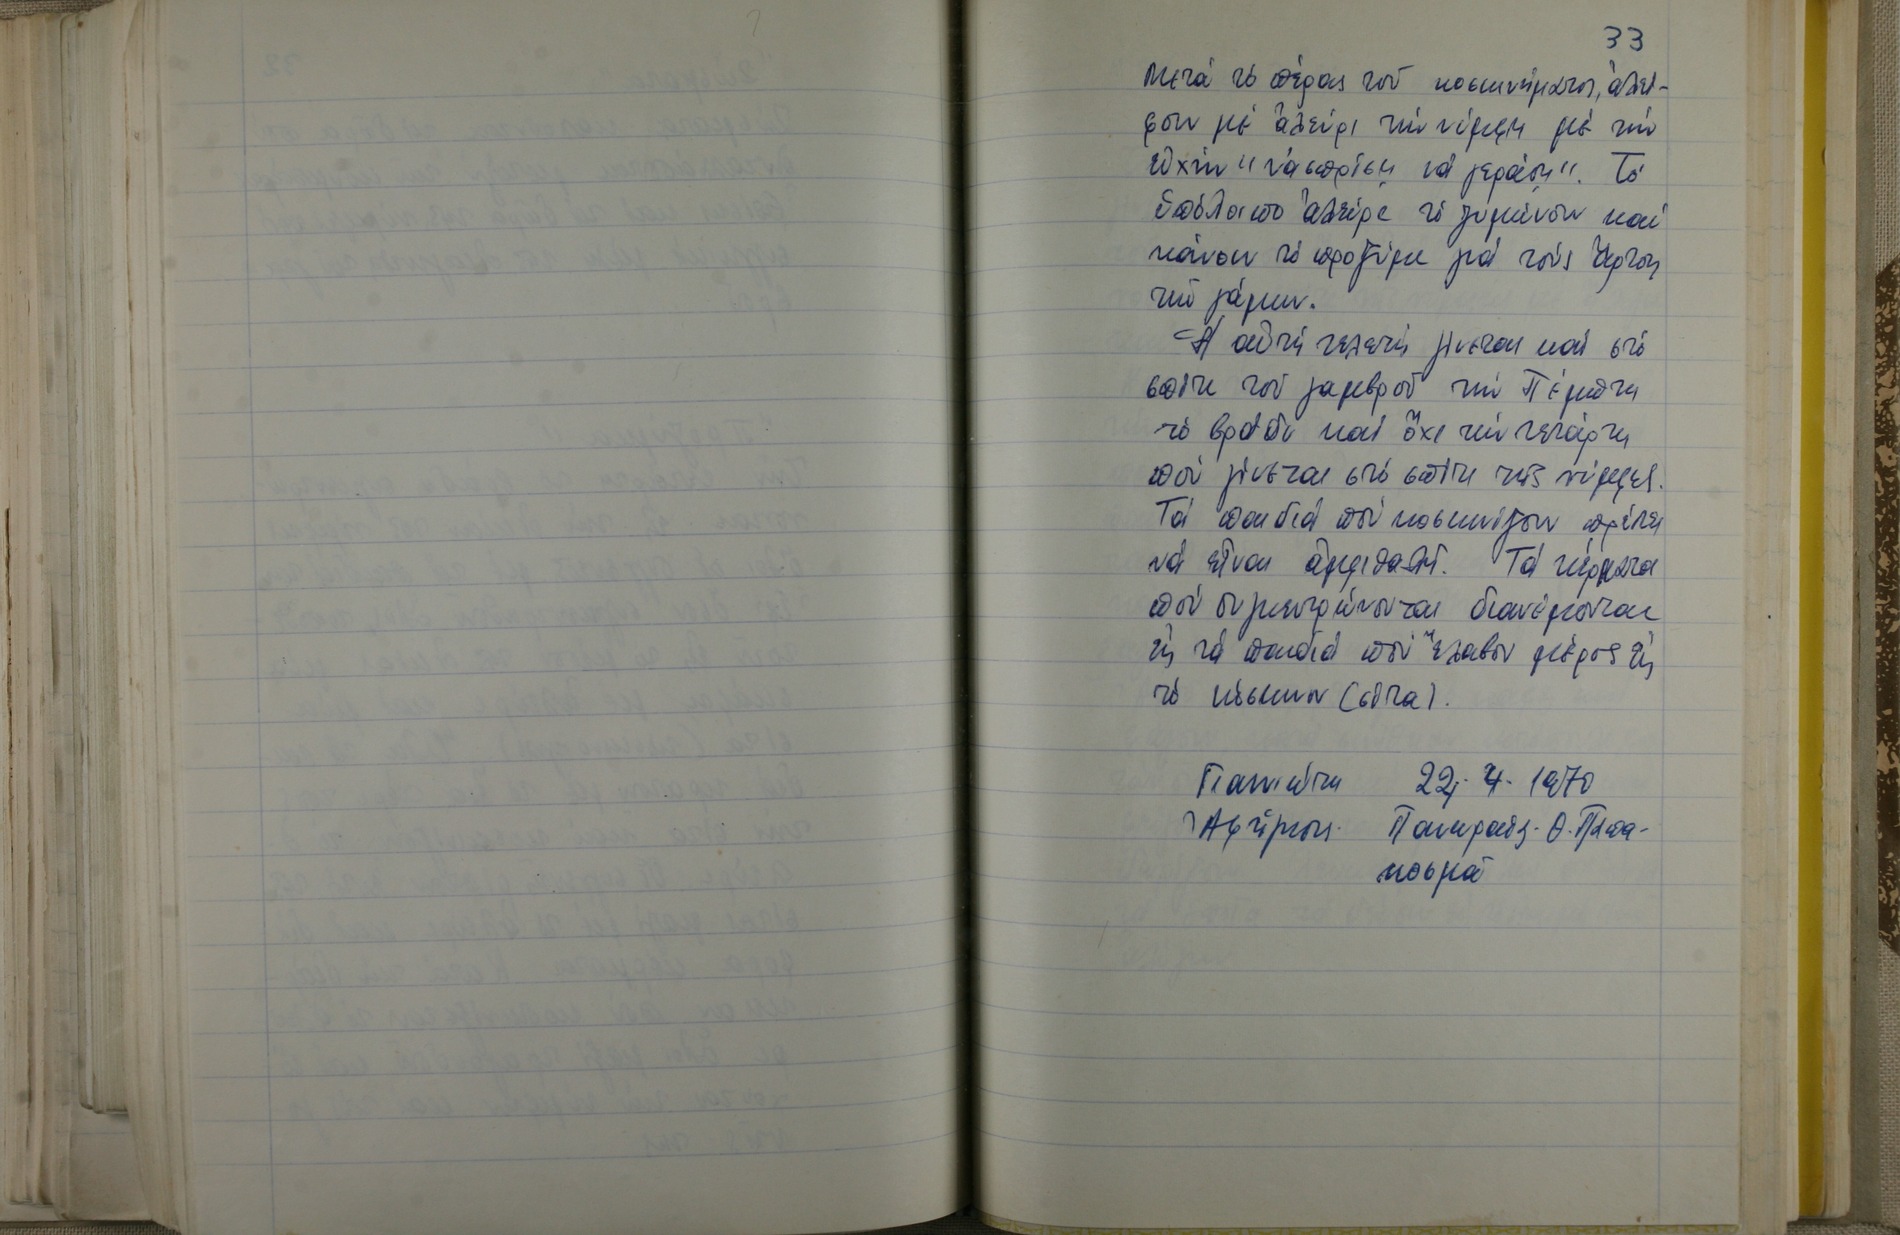 33
Μετά τό πέρας τοῦ κοσκινήματος, ἀλεί-
φουν μέ ἀλεύρι τήν νύμφη μέ τήν
εὐχήν "νά σπρίση νά γεράση". Τό
ὑπόλοιπο ἀλεύρι τό ζυμώνουν καί
κάνουν τό προζύμι γιά τούς ἄρτους
τοῦ γάμου.
Ἡ αὐτή τελετή γίνεται καί στό
σπίτι τοῦ γαμβροῦ τήν Πέμπτη
τό βράδυ καί ὄχι τήν τετάρτη
πού γίνεται στό σπίτι τῆς νύμφης.
Τά παιδιά πού κοσκινίζουν πρέπει
νά εἶναι ἀμφιθαλῆ. Τά κέρματα
πού συγκεντρώνονται διανέμονται
εἰς τά παιδιά πού ἔλαβον μέρος εἰς
τό κόσκινον (σῖτα).
Γιαννιώτη 22. 7. 1970
Ἀφήγησις. Παγκρατῆς. Θ. Παπα-
κοσμᾶ